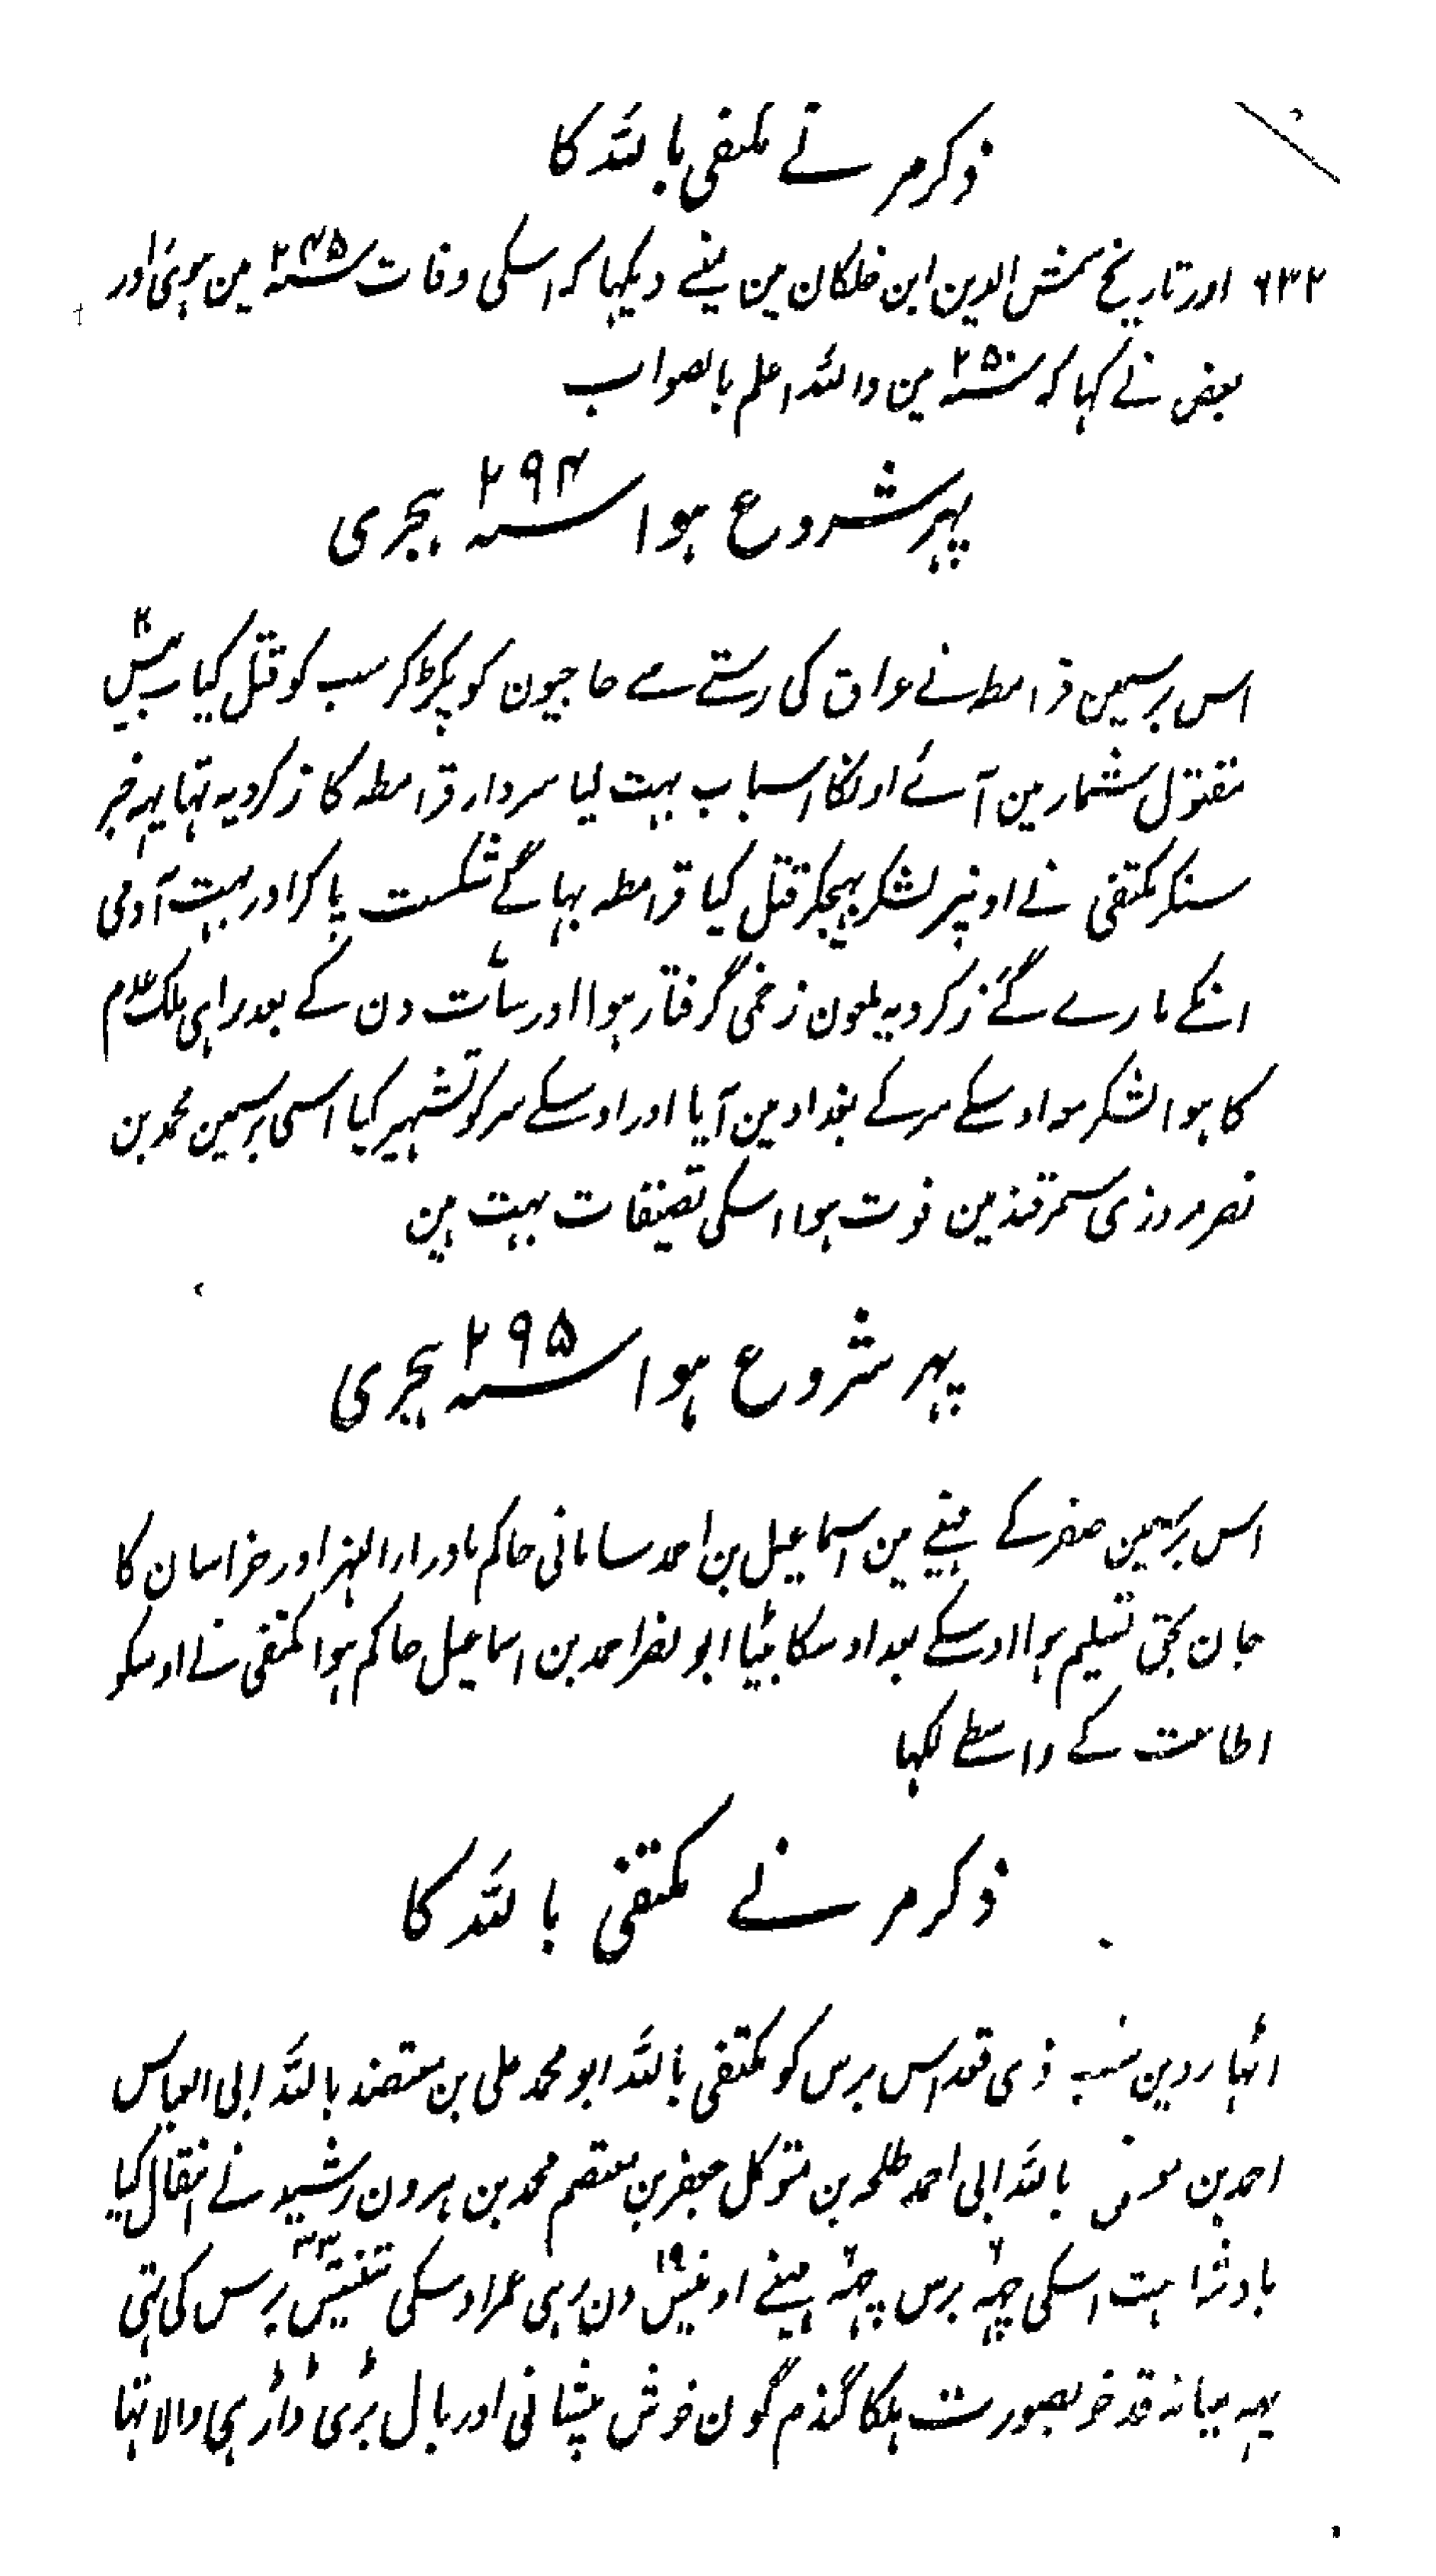 ذکر مرنے مکتفی باللہ کا
۶۳۲ اور تاریخ شمس الدین ابن خلکان مین مینے دیکھا کہ اسکی وفات سنہ ۲۴۵ مین ہوئی اور
بعض نے کہا کہ سنہ ۲۵۰ مین واللہ اعلم بالصواب
پہر شروع ہوا سنہ ۲۹۴ ہجری
اس برسمین قرامطہ نے عراق کی رستے سے حاجیون کو پکڑ کر سب کو قتل کیا بیس
مقتول شمار مین آئے اونکا اسباب بہت لیا سردار قرامطہ کا زکرویہ تہا یہہ خبر
سنکر مکتفی نے اونپر لشکر بہیجکر قتل کیا قرامطہ بہاگے شکست پا کر اور بہت آدمی
انکے مارے گئے زکرویہ ملعون زخمی گرفتار ہوا اور سات دن کے بعد راہی ملک عدم
کا ہوا لشکر مع اوسکے سر کے بغداد مین آیا اور اوسکے سر کو تشہیر کیا اسی برسمین محمد بن
نصر مروزی سمرقند مین فوت ہوا اسکی تصنیفات بہت ہین
پہر شروع ہوا سنہ ۲۹۵ ہجری
اس برسمین صفر کے مہینے مین اسماعیل بن احمد سامانی حاکم ماوراء النہر اور خراسان کا
جان بحق تسلیم ہوا اوسکے بعد اوسکا بیٹا ابو نصر احمد بن اسماعیل حاکم ہوا مکتفی نے اوسکو
اطاعت کے واسطے لکہا
ذکر مرنے مکتفی باللہ کا
اٹہاروین شب ذی قعد اس برس کو مکتفی باللہ ابو محمد علی بن معتضد باللہ ابی العباس
احمد بن باللہ ابی احمد طلحہ بن متوکل جعفر بن معتصم محمد بن ہرون رشید نے انتقال کیا
بادشاہت اسکی چہہ ۶ برس چہہ ۶ مہینے اونیس ۱۹ دن رہی عمر اوسکی تنتیس ۳۳ برس کی تہی
یہہ میانہ قد خوبصورت ہلکا گندم گون خوش پیشانی اور بال بڑی ڈاڑہی والا تہا